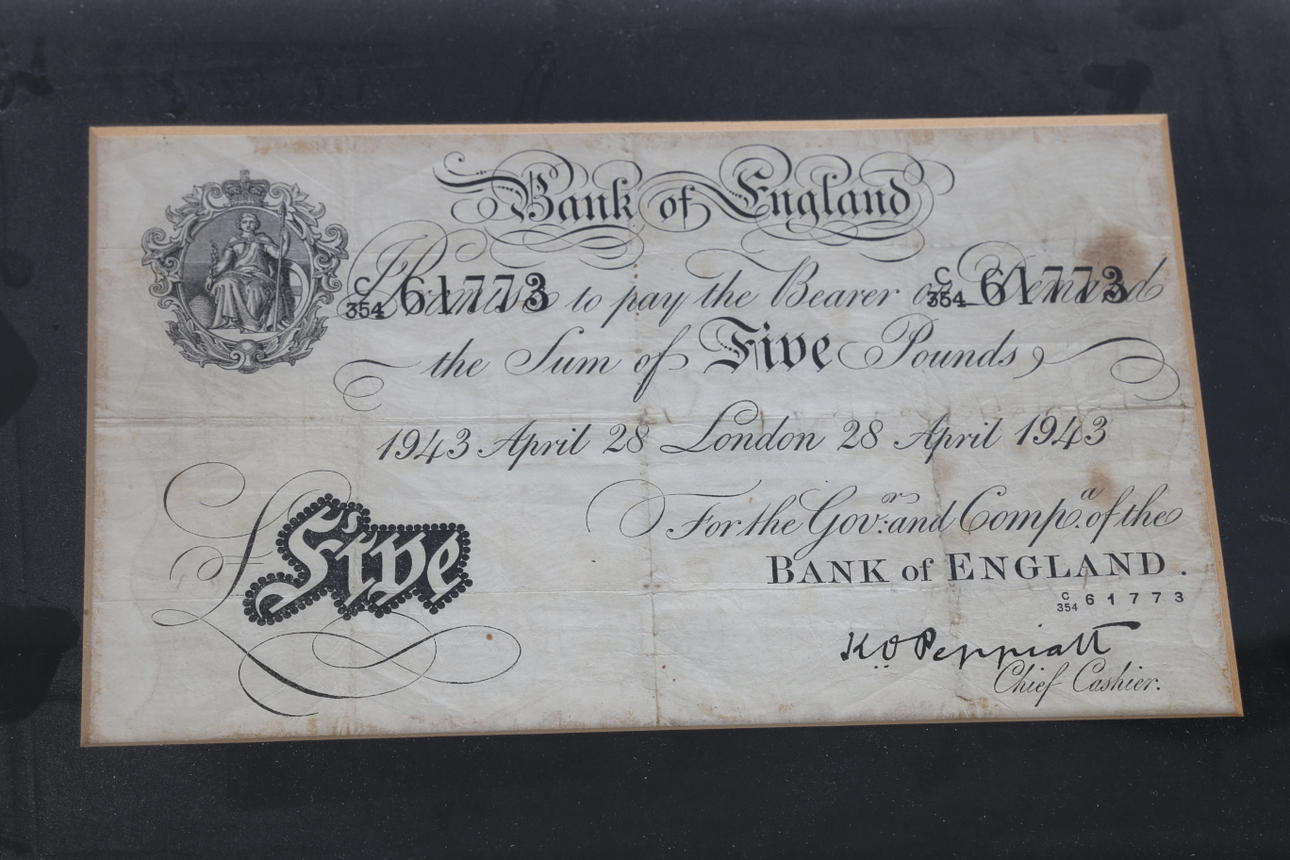 Bank of England
I Promise to pay the Bearer on Demand
C/354 61773 C/354 61773
the Sum of Five Pounds
1943 April 28 London 28 April 1943
For the Gov.r and Comp.a of the
BANK of ENGLAND.
C/354 61773
£Five
K O Peppiatt
Chief Cashier.